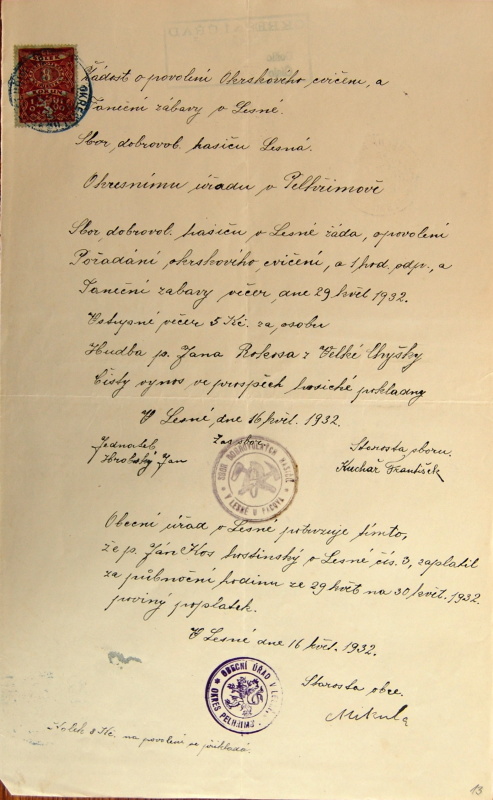 Žádost o povolení Okrskového cvičení, a
Taneční zábavy v Lesné.
Sbor, dobrovol. hasičů Lesná.
Okresnímu úřadu v Pelhřimově
Sbor, dobrovol. hasičů v Lesné žáda, o povolení
Pořádání okrskového, cvičení, a 1 hod. odp., a
Taneční zabavy večer, dne 29 květ 1932.
Vstupné večer 5 Kč. za, osobu
Hudba p. Jana Rokosa z Velké Chyšky
Čistý vynos ve prospěch hasické pokladny
V Lesné, dne 16 květ. 1932.
Jednatel Za sbor Starosta sboru.
Hrobský Jan Kuchař František
SBOR DOBROVOLNÝCH HASIČŮ
V LESNÉ U PACOVA
Obecní úřad v Lesné potvrzuje tímto,
že p. Ján Kos hostinský v Lesné čís. 3, zaplatil
za půlnoční hodinu ze 29 květ na 30 květ. 1932.
poviný poplatek.
V Lesné dne 16 květ. 1932.
OBECNÍ ÚŘAD V LESNÉ
OKRES PELHŘIMOV
Starosta obce.
Mikula
Kolek 8 Kč. na povolení se přikládá.
13